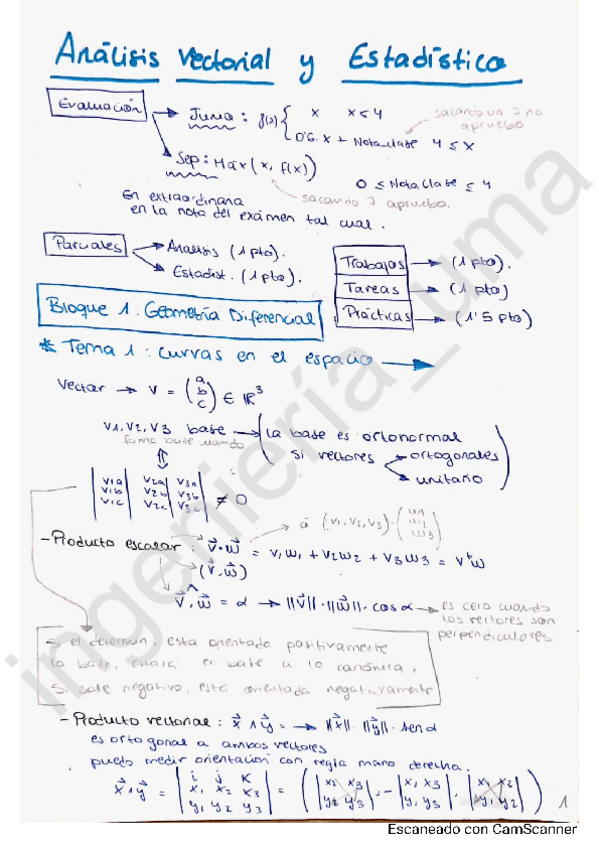 Análisis Vectorial y Estadística
Evaluación
Junio: f(x) { x   x<4
0'6·x + Nota_clase   4 ≤ x
sacando un 7 no apruebo
Sep: Max(x, f(x))
0 ≤ Nota Clase ≤ 4
sacando 7 apruebo.
En extraordinaria
en la nota del exámen tal cual.
Parciales
Analisis (1 pto).
Estadist. (1 pto).
Trabajos → (1 pto).
Tareas → (1 pto)
Prácticas → (1'5 pto)
Bloque 1: Geometría Diferencial
* Tema 1: curvas en el espacio →
Vector → v = (a b c) ∈ ℝ³
v1, v2, v3 base → la base es ortonormal
forma base cuando
si vectores
ortogonales
unitario
| v1a v2a v3a |
| v1b v2b v3b | ≠ 0
| v1c v2c v3c |
ó (v1, v2, v3)·(w1 w2 w3)
- Producto escalar: v⃗·w⃗ = v1w1 + v2w2 + v3w3 = vᵗw
(v⃗, w⃗)
v⃗, w⃗ = α → ||v⃗||·||w⃗||·cos α → es cero cuando
los vectores son
perpendiculares
Si el determin, esta orientada positivamente
la base, en base a la canónica,
Si sale negativo, está orientada negativamente
- Producto vectorial: x⃗ ∧ y⃗ = → ||x⃗||·||y⃗||·sen α
es ortogonal a ambos vectores
puedo medir orientación con regla mano derecha.
x⃗∧y⃗ = | i j k | = ( | x2 x3 | , - | x1 x3 | , | x1 x2 | )
| x1 x2 x3 | | y2 y3 | | y1 y3 | | y1 y2 |
| y1 y2 y3 |
1
ingeniería_uma
Escaneado con CamScanner